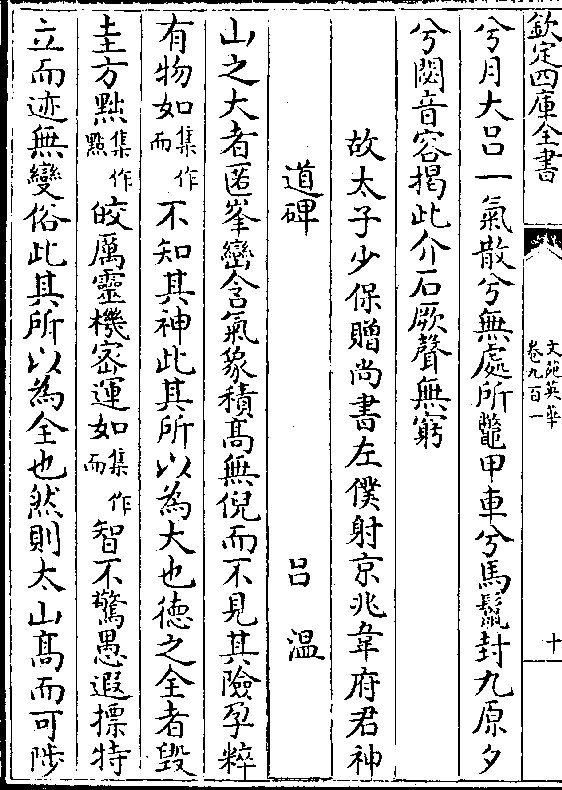 欽定四庫全書
文苑英華
卷九百一
十
兮月大呂一氣散兮無處所鼈甲車兮馬鬛封九原夕
兮閟音容揭此介石厥聲無窮
故太子少保贈尚書左僕射京兆韋府君神
道碑
呂溫
山之大者匿峯巒含氣象積髙無倪而不見其險孕粹
有物如集作而不知其神此其所以為大也德之全者毀
圭方點集作點皎厲靈機宻運如集作而智不驚愚遐摽特
立而迹無變俗此其所以為全也然則太山髙而可陟